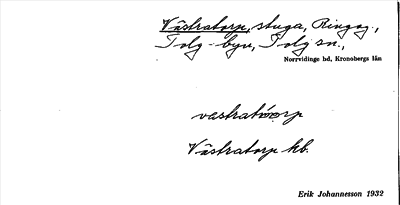 Västratorp, stuga, Ringag.,
Tolg-byn, Tolg sn.,
Norrvidinge hd, Kronobergs län
västratorp
Västratorp kb.
Erik Johannesson 1932